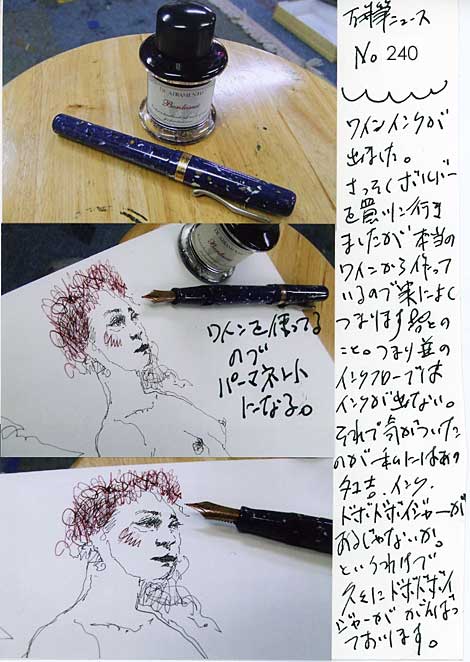 万年筆ニュース
No 240
ワインインクが
出ました。
さっそくボルドー
を買いに行き
ましたが本当の
ワインから作って
いるので実によく
つまります
こと。つまり並の
インクフローでは
インクが出ない。
それで気がついた
のが私にはあの
インク
ドボドボジャーが
あるじゃないか。
というわけで
久々にドボドボ
ジャーががんばっ
ております。
DE ATRAMENTIS
Bordeaux
ワインを使ってる
ので
パーマネント
になる。